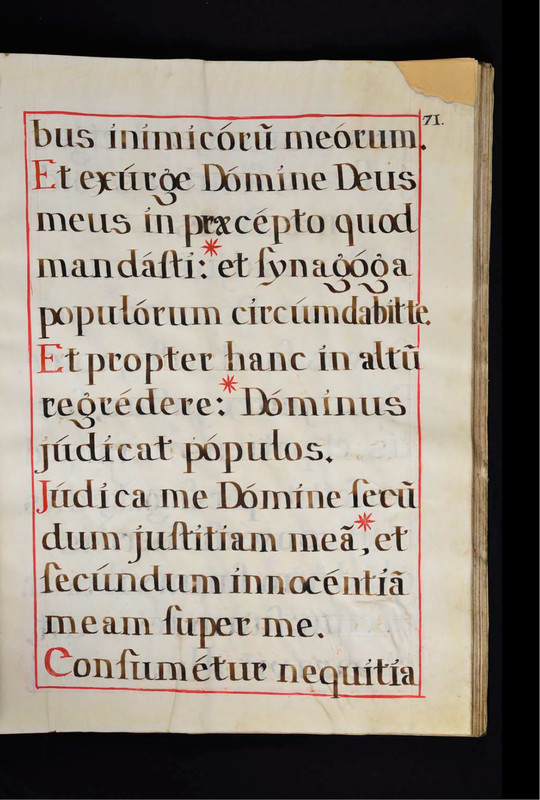 71.
bus inimicórũ meórum.
Et exúrge Dómine Deus
meus in præcépto quod
mandáſti:* et ſynagóga
populórum circúmdabit te.
Et propter hanc in altũ
regrédere:* Dóminus
júdicat pópulos.
Júdica me Dómine ſecũ
dum juſtitiam meã,* et
ſecúndum innocéntiã
meam ſuper me.
Conſumétur nequitía